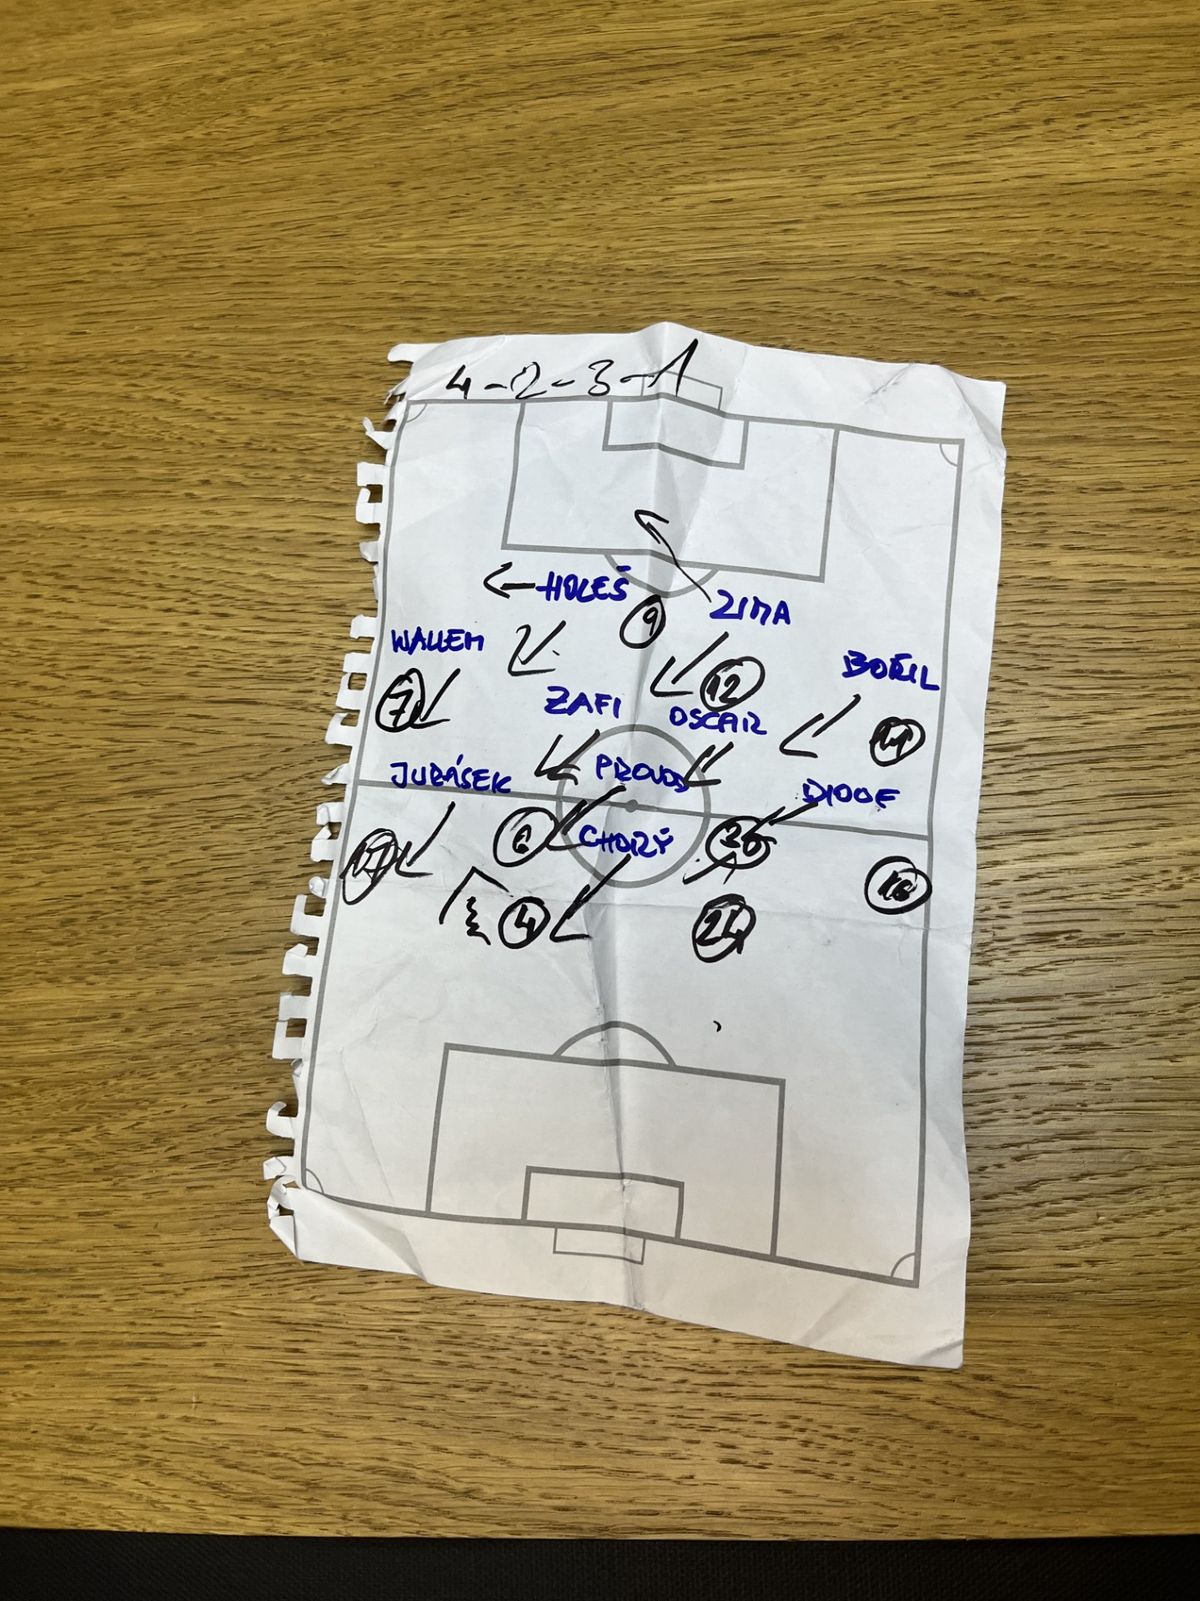 4-2-3-1
HOLEŠ
ZIMA
9
WALLEM
BOŘIL
12
7
ZAFI
OSCAR
JURÁSEK
PROVOD
DIOOF
6
CHORÝ
26
17
18
4
24